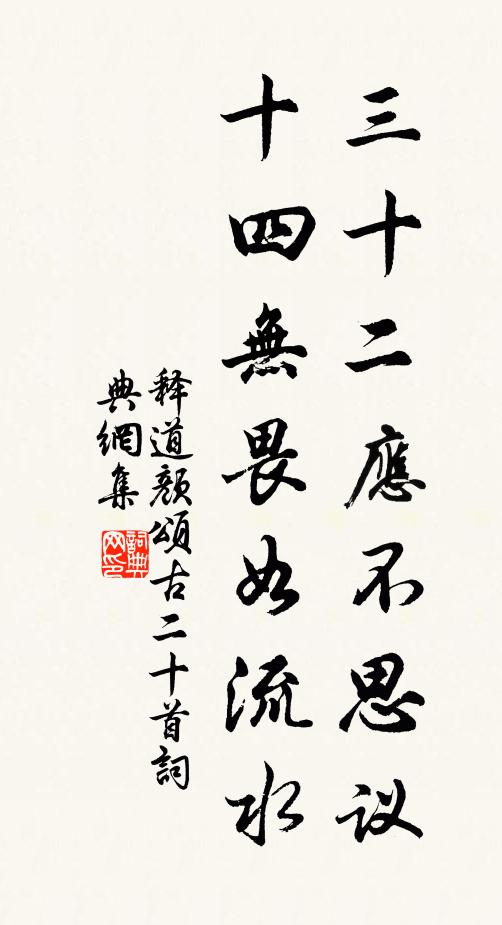 三十二應不思议
十四無畏如流水
释道颜頌古二十首詞
典網集
詞典
网印